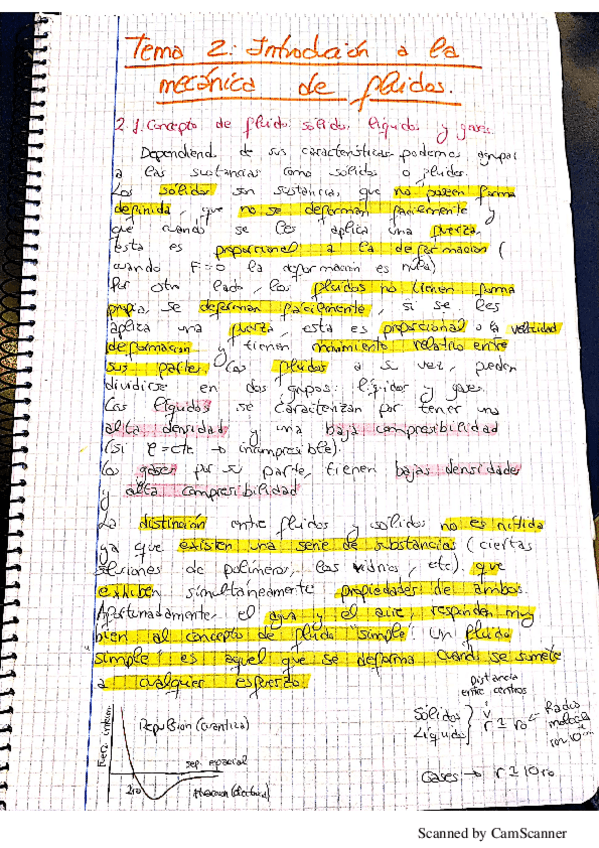 Tema 2: Introducción a la
mecánica de fluidos.
2.1. Concepto de fluido: sólidos, líquidos y gases.
Dependiend. de sus características podemos agrupar
a las sustancias como sólidos o fluidos.
Los solidos son sustancias, que no poseen forma
definida, que no se deforman facilmente y
que cuando se les aplica una fuerza,
esta es proporcional a la deformacion (
cuando F=0 la deformacion es nula)
Por otro lado, los fluidos no tienen forma
propia, se deforman facilmente, si se les
aplica una fuerza, esta es proporcional a la velocidad
deformacion y tienen movimiento relativo entre
sus partes. Los fluidos a su vez, pueden
dividirse en dos grupos: líquidos y gases.
Los líquidos se caracterizan por tener una
alta densidad y una baja compresibilidad
(si ρ=cte → incompresible).
Los gases por su parte, tienen bajas densidades
y alta compresibilidad
La distinción entre fluidos y sólidos no es nítida
ya que existen una serie de substancias (ciertas
soluciones de polímeros, los vidrios, etc). que
exhiben simultáneamente propiedades de ambos.
Afortunadamente, el agua y el aire, responden muy
bien al concepto de fluido "simple". Un fluido
simple" es aquel que se deforma cuando se somete
a cualquier esfuerzo.
Distancia
entre centros
Sólidos
Líquidos } r ≃ r₀ ← Radio
Gases → r ≃ 10r₀
Repulsion (cuantica)
sep. espacial
Scanned by CamScanner